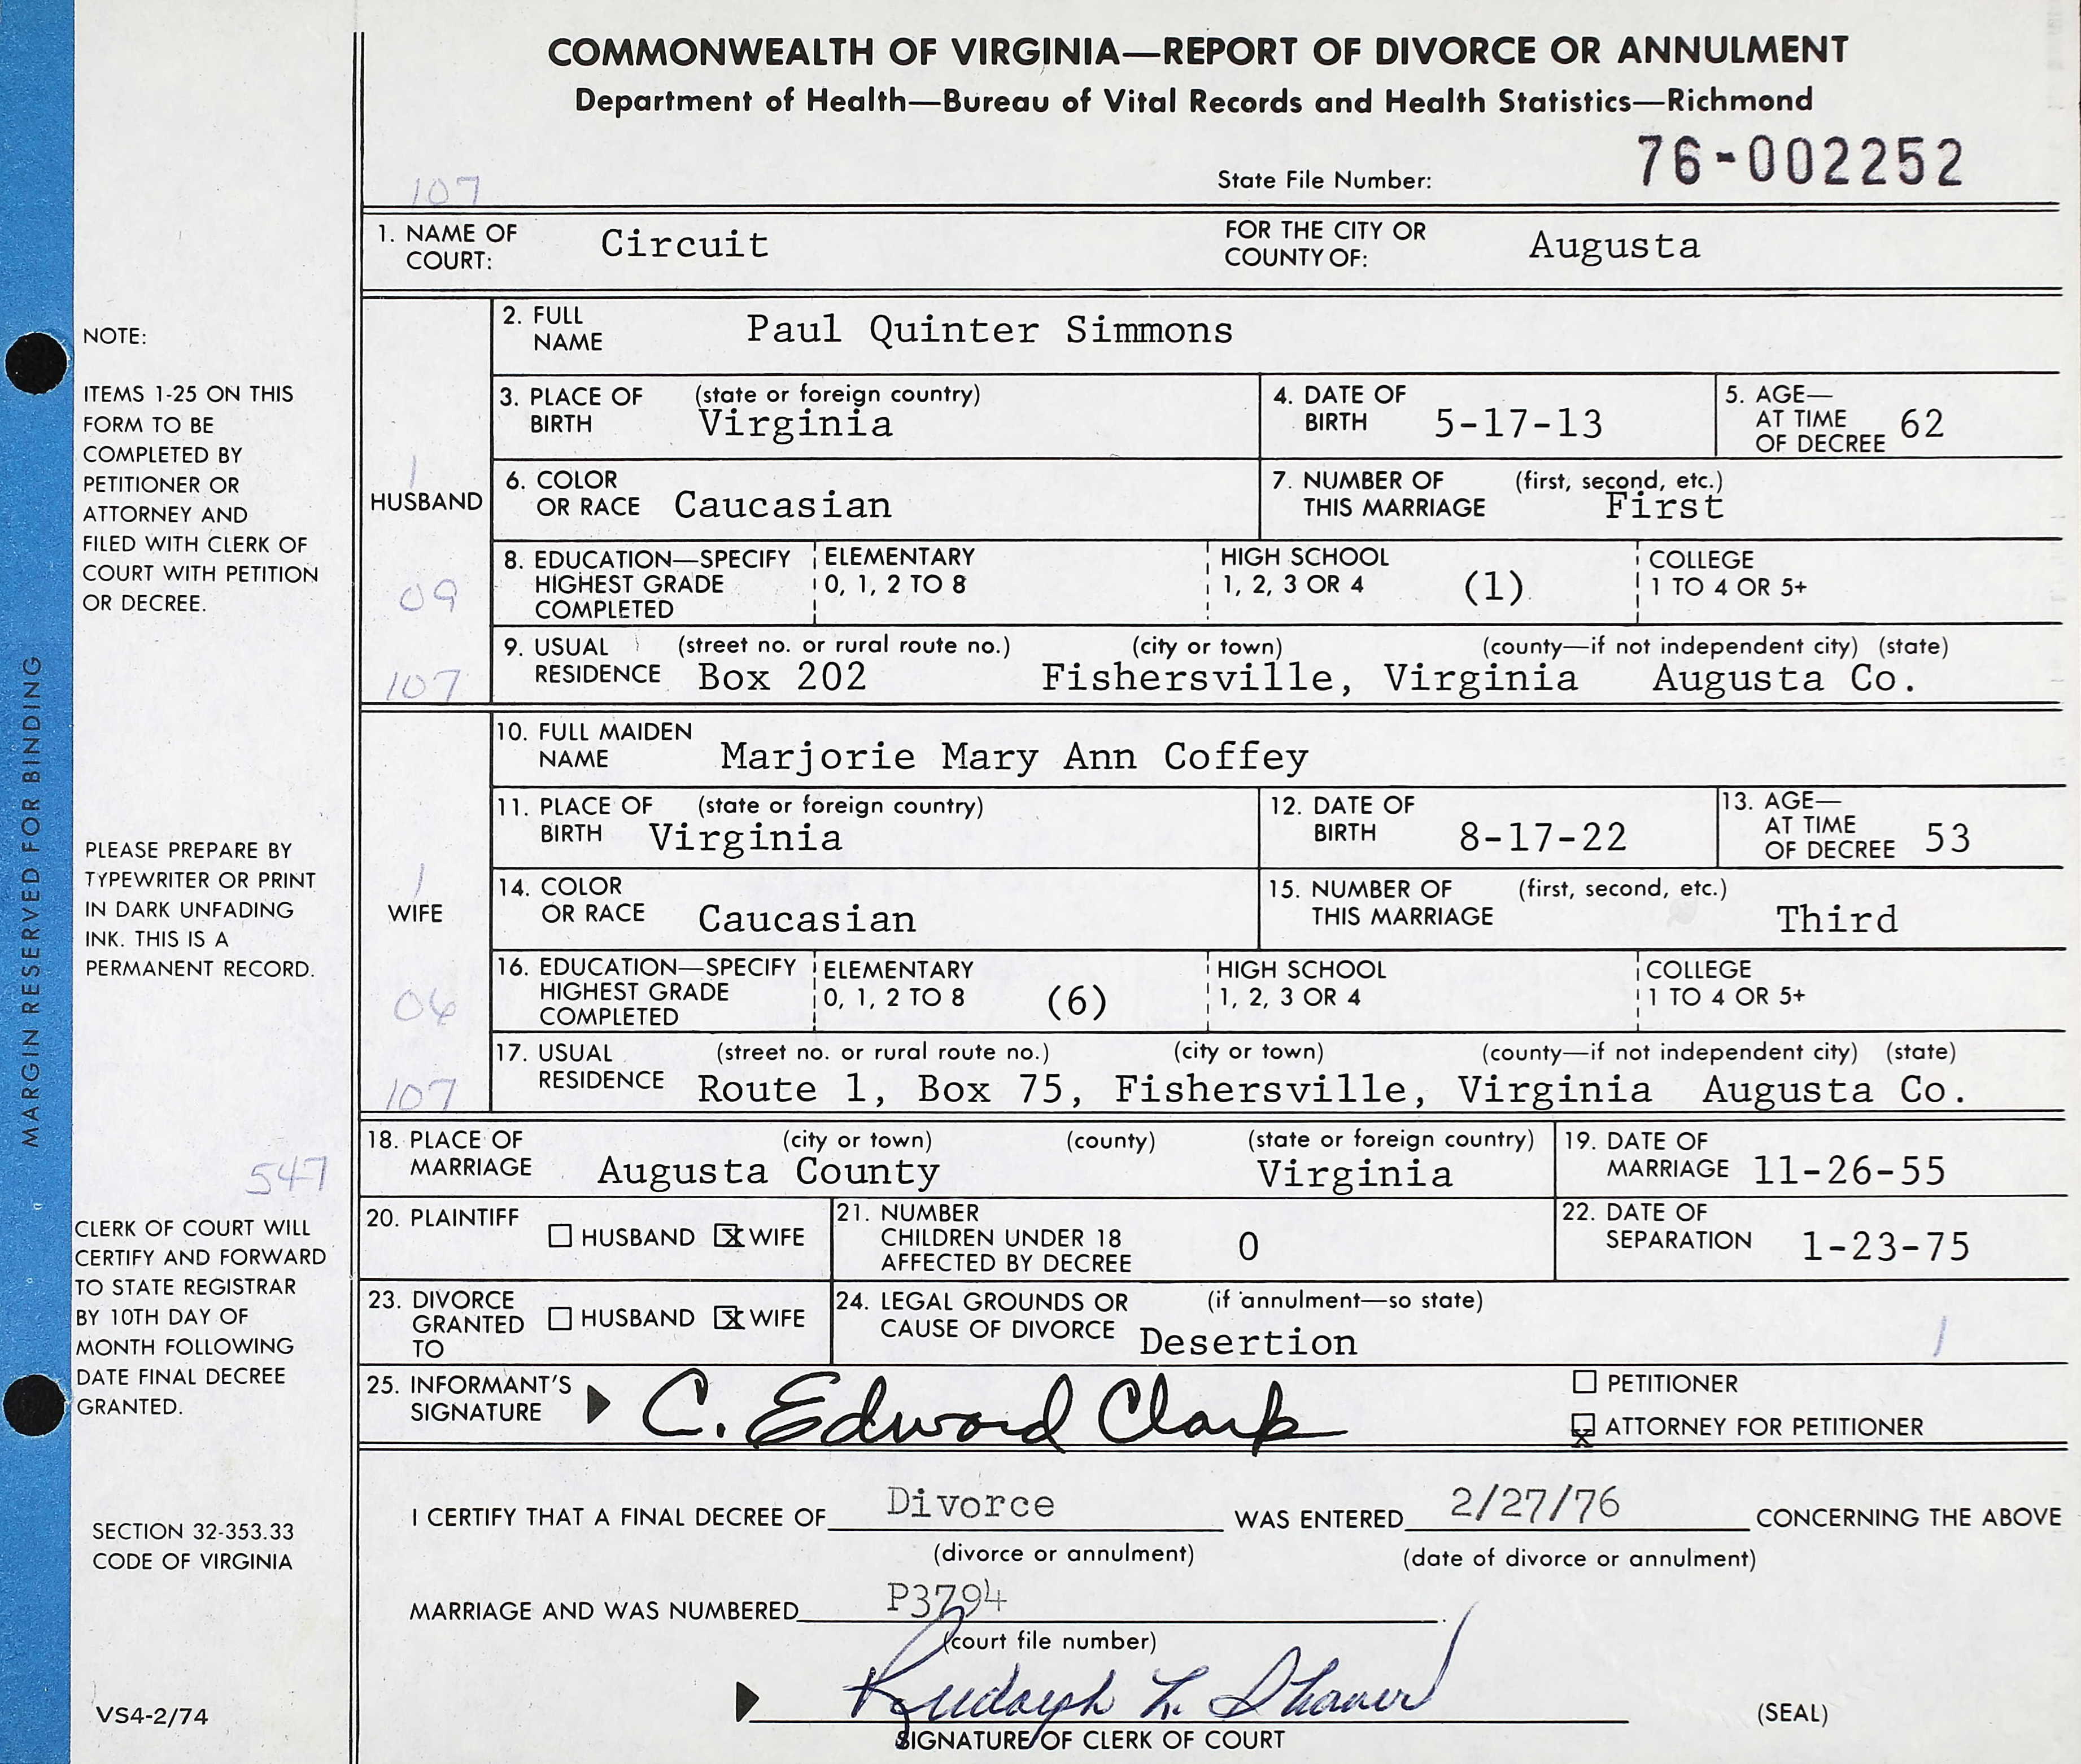 COMMONWEALTH OF VIRGINIA—REPORT OF DIVORCE OR ANNULMENT
Department of Health—Bureau of Vital Records and Health Statistics—Richmond
107
State File Number: 76-002252
1. NAME OF COURT: Circuit FOR THE CITY OR COUNTY OF: Augusta
HUSBAND
1
09
107
2. FULL NAME Paul Quinter Simmons
3. PLACE OF BIRTH (state or foreign country) Virginia
4. DATE OF BIRTH 5-17-13
5. AGE— AT TIME OF DECREE 62
6. COLOR OR RACE Caucasian
7. NUMBER OF THIS MARRIAGE (first, second, etc.) First
8. EDUCATION—SPECIFY HIGHEST GRADE COMPLETED
ELEMENTARY 0, 1, 2 TO 8
HIGH SCHOOL 1, 2, 3 OR 4 (1)
COLLEGE 1 TO 4 OR 5+
9. USUAL RESIDENCE (street no. or rural route no.) (city or town) (county—if not independent city) (state)
Box 202 Fishersville, Virginia Augusta Co.
WIFE
1
06
107
10. FULL MAIDEN NAME Marjorie Mary Ann Coffey
11. PLACE OF BIRTH (state or foreign country) Virginia
12. DATE OF BIRTH 8-17-22
13. AGE— AT TIME OF DECREE 53
14. COLOR OR RACE Caucasian
15. NUMBER OF THIS MARRIAGE (first, second, etc.) Third
16. EDUCATION—SPECIFY HIGHEST GRADE COMPLETED
ELEMENTARY 0, 1, 2 TO 8 (6)
HIGH SCHOOL 1, 2, 3 OR 4
COLLEGE 1 TO 4 OR 5+
17. USUAL RESIDENCE (street no. or rural route no.) (city or town) (county—if not independent city) (state)
Route 1, Box 75, Fishersville, Virginia Augusta Co.
18. PLACE OF MARRIAGE (city or town) (county) (state or foreign country)
Augusta County Virginia
19. DATE OF MARRIAGE 11-26-55
20. PLAINTIFF HUSBAND X WIFE
21. NUMBER CHILDREN UNDER 18 AFFECTED BY DECREE 0
22. DATE OF SEPARATION 1-23-75
23. DIVORCE GRANTED TO HUSBAND X WIFE
24. LEGAL GROUNDS OR CAUSE OF DIVORCE (if annulment—so state) Desertion
1
25. INFORMANT'S SIGNATURE C. Edward Clark
PETITIONER
X ATTORNEY FOR PETITIONER
I CERTIFY THAT A FINAL DECREE OF Divorce WAS ENTERED 2/27/76 CONCERNING THE ABOVE
(divorce or annulment) (date of divorce or annulment)
MARRIAGE AND WAS NUMBERED P3794
(court file number)
Rudolph L. Shaver
SIGNATURE OF CLERK OF COURT
(SEAL)
MARGIN RESERVED FOR BINDING
NOTE:
ITEMS 1-25 ON THIS
FORM TO BE
COMPLETED BY
PETITIONER OR
ATTORNEY AND
FILED WITH CLERK OF
COURT WITH PETITION
OR DECREE.
PLEASE PREPARE BY
TYPEWRITER OR PRINT
IN DARK UNFADING
INK. THIS IS A
PERMANENT RECORD.
547
CLERK OF COURT WILL
CERTIFY AND FORWARD
TO STATE REGISTRAR
BY 10TH DAY OF
MONTH FOLLOWING
DATE FINAL DECREE
GRANTED.
SECTION 32-353.33
CODE OF VIRGINIA
VS4-2/74